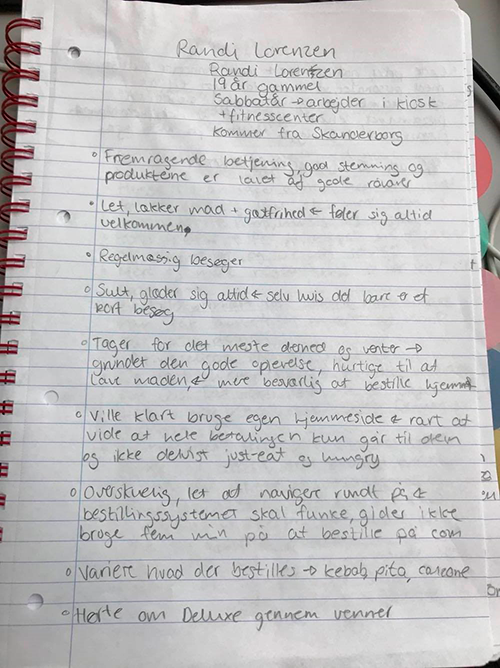 Randi Lorenzen
Randi Lorenzen
19 år gammel
Sabbatår → arbejder i kiosk
+ fitnesscenter
Kommer fra Skanderborg
Fremragende betjening, god stemning og
produkterne er lavet af gode råvarer
Let, lækker mad + gæstfrihed ← føler sig altid
velkommen,
Regelmæssig besøger
Sult, glæder sig altid ← selv hvis det bare er et
kort besøg
Tager for det meste derned og venter →
grundet den gode oplevelse, hurtige til at
lave maden, & mere besværlig at bestille hjemmefra
Ville klart bruge egen hjemmeside & rart at
vide at hele betalingen kun går til dem
og ikke delvist just-eat og hungry
Overskuelig, let at navigere rundt på &
bestillingssystemet skal funke, gider ikke
bruge fem min på at bestille på com
Variere hvad der bestilles → kebab, pita,
Hørte om Deluxe gennem venner